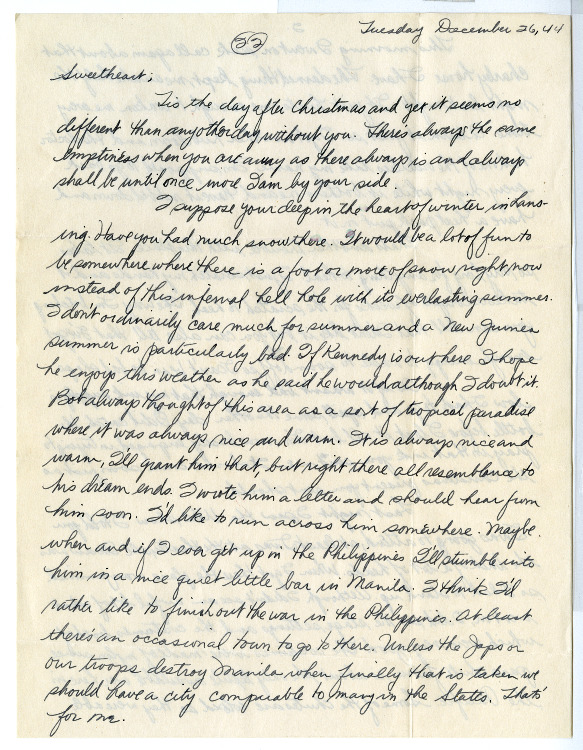 Tuesday December 26, 44
22
Sweetheart;
Tis the day after Christmas and yet it seems no
different than anyother day without you. There's always the same
emptiness when you are away as there always is and always
shall be until once more I am by your side
I suppose your deep in the heart of winter in Lans-
ing. Have you had much snow there. It would be a lot of fun to
be somewhere where there is a foot or more of snow right now
instead of this infernal hell hole with its everlasting summer.
I don't ordinarily care much for summer and a New Guinea
summer is particularly bad. If Kennedy is out here I hope
he enjoys this weather as he said he would although I doubt it.
Bob always thought of this area as a sort of tropical paradise
where it was always nice and warm. It is always nice and
warm, I'll grant him that, but right there all resemblance to
his dream ends. I wrote him a letter and should hear from
him soon. I'd like to run across him somewhere. Maybe
when and if I ever get up in the Philippines I'll stumble into
him in a nice quiet little bar in Manila. I think I'd
rather like to finish out the war in the Philippines. At least
there's an occasional town to go to there. Unless the Japs or
our troops destroy Manila when finally that is taken we
should have a city comparable to many in the States. That's
for me.